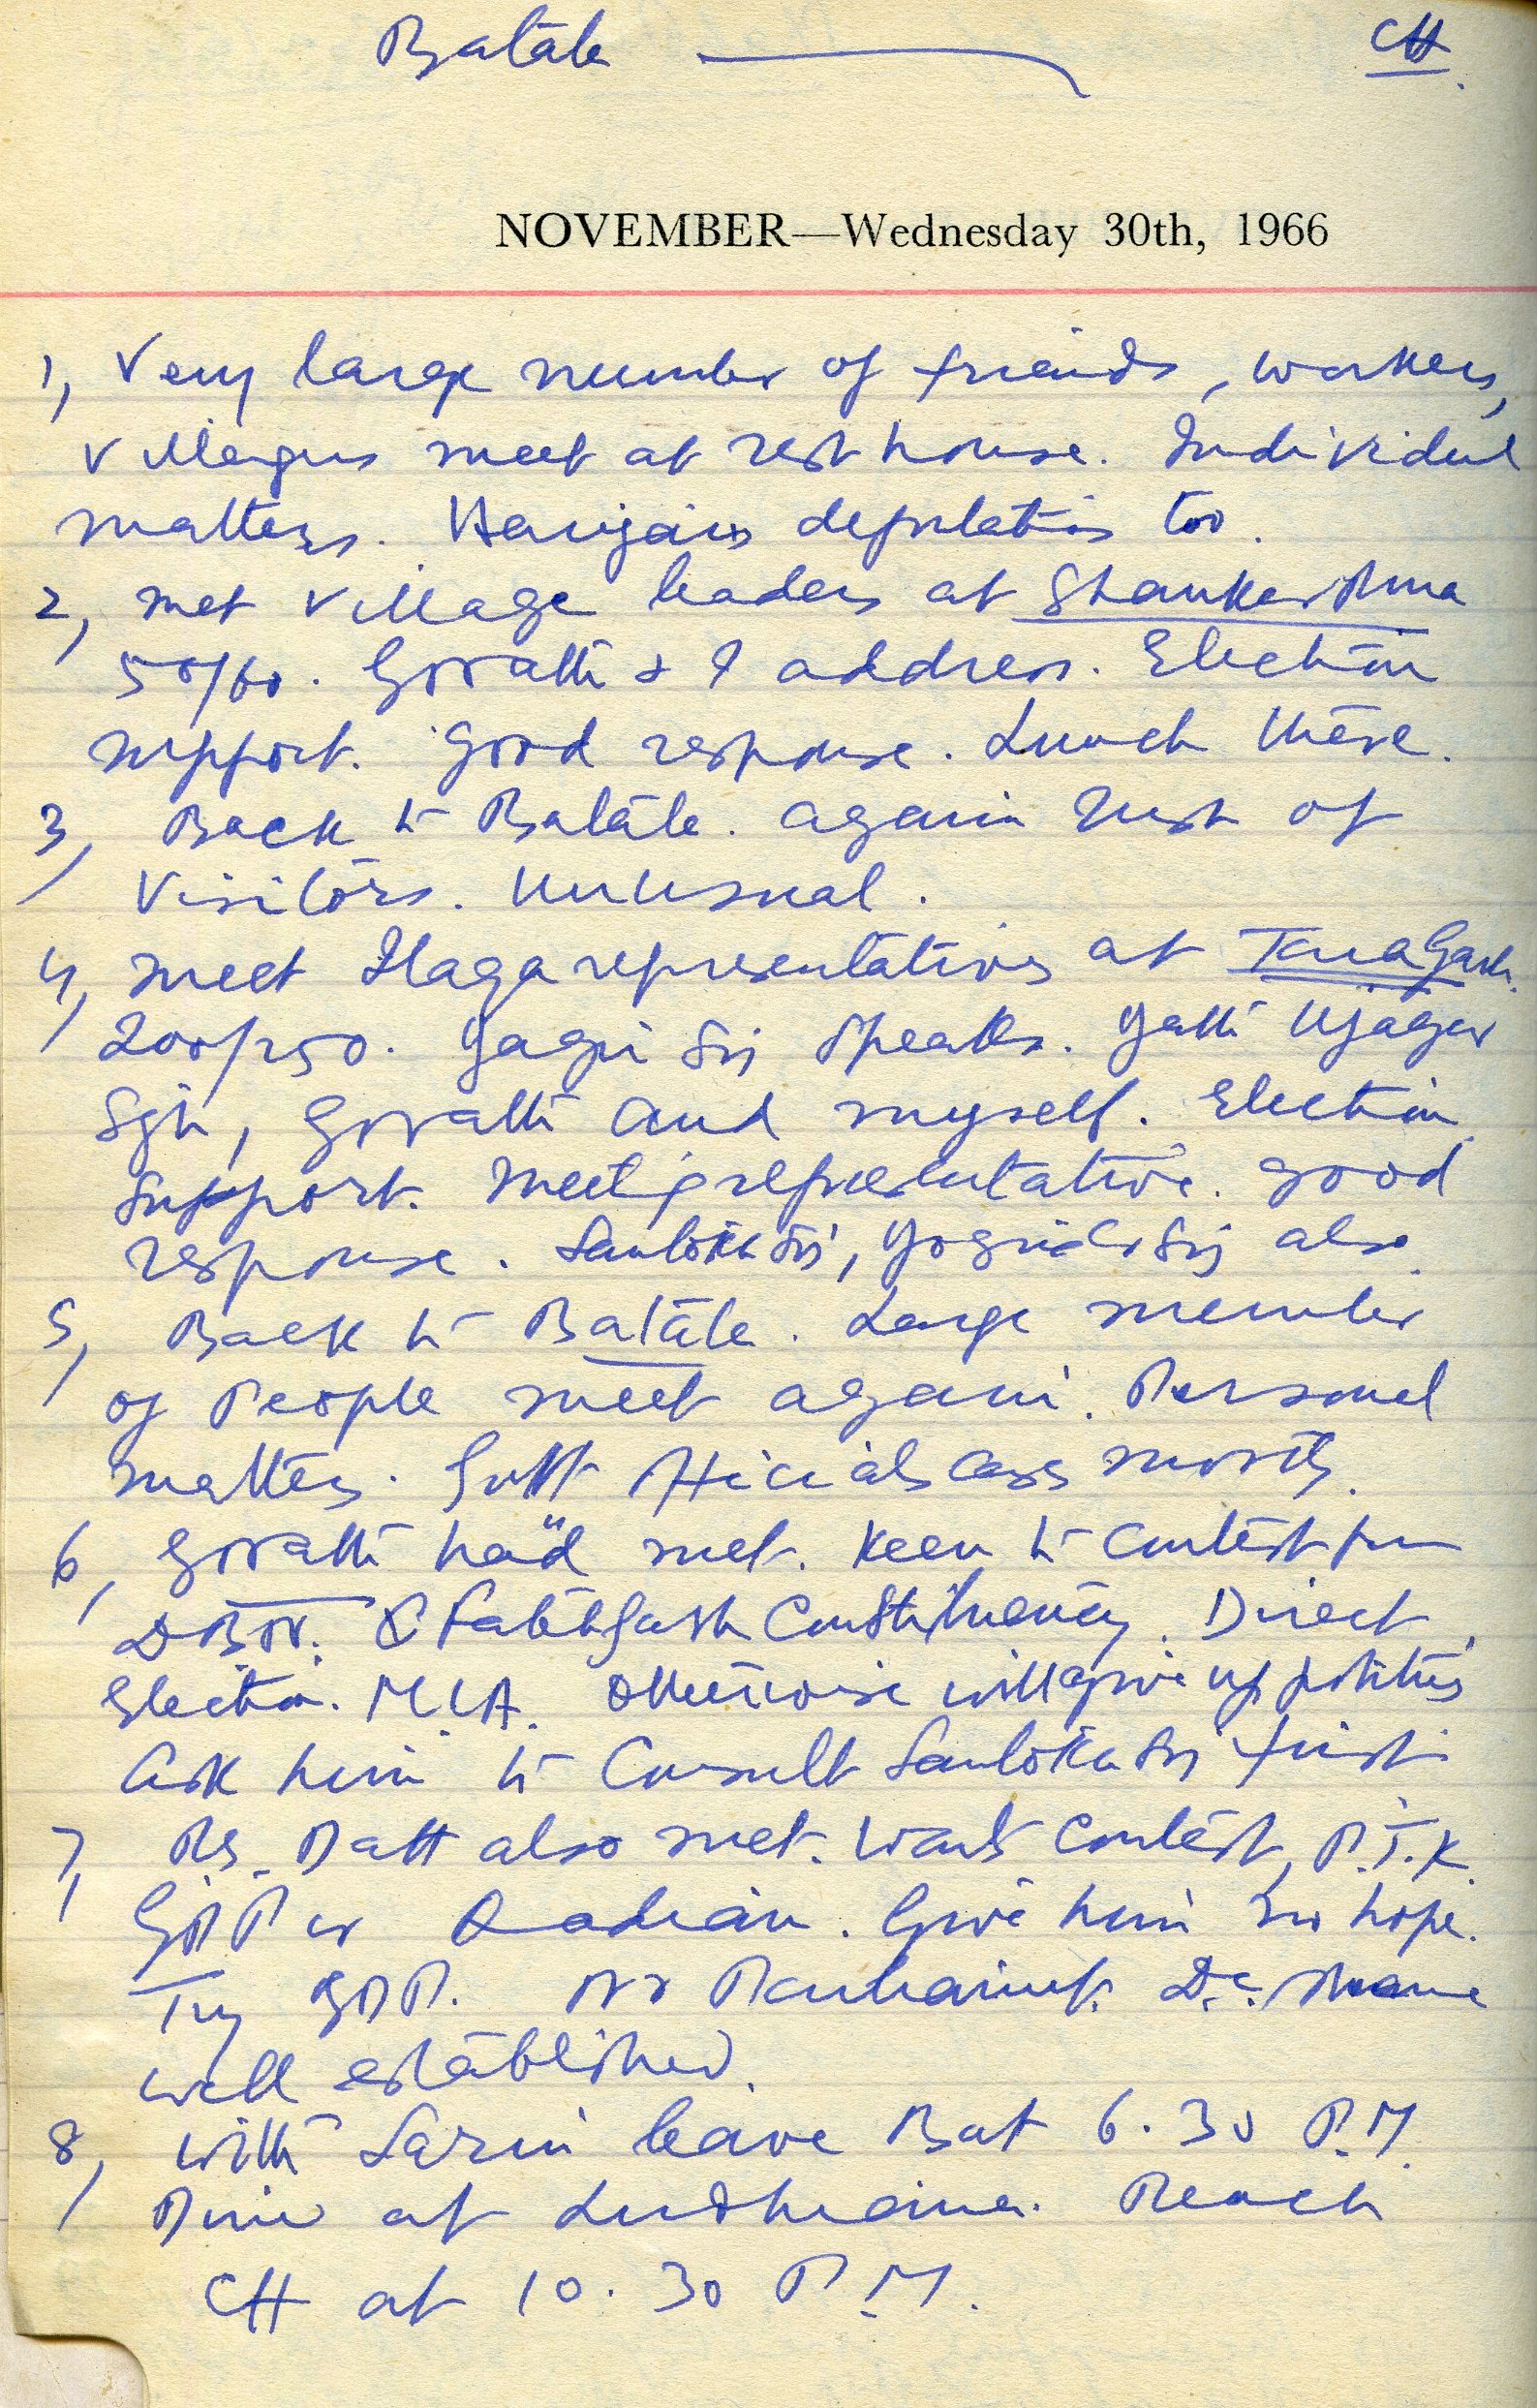 Batala CH.
NOVEMBER—Wednesday 30th, 1966
1, Very large number of friends, workers,
villagers meet at rest house. Individual
matters. Harijans deputation too.
2, met village leaders at Shankerpura
50/60. Goratti & I address. Election
support. Good response. Lunch there.
3, Back to Batala. again rush of
visitors. Unusual.
4, meet Ilaqa representatives at TaraGarh.
200/250. speaks. Ujagar
Sgh, Goratti and myself. Election
support. meeting representative. good
response. Santokh Sij, also.
5, Back to Batala. Large number
of people meet again. Personal
matters. Govt officials cases mostly.
6, Goratti had met. Keen to contest from
DBN. & FatehGarh Constituency. Direct
Election. M.L.A. otherwise will give up politics
ask him to consult Santokh Sij first.
7, Datt also met. Wants contest, P.T.K.
GDP or Qadian. Give him no hope.
Try GDP. No D.C.
well established.
8, with Sarin leave Bat 6.30 P.M.
Dine at Ludhiana. Reach
CH at 10.30 P.M.